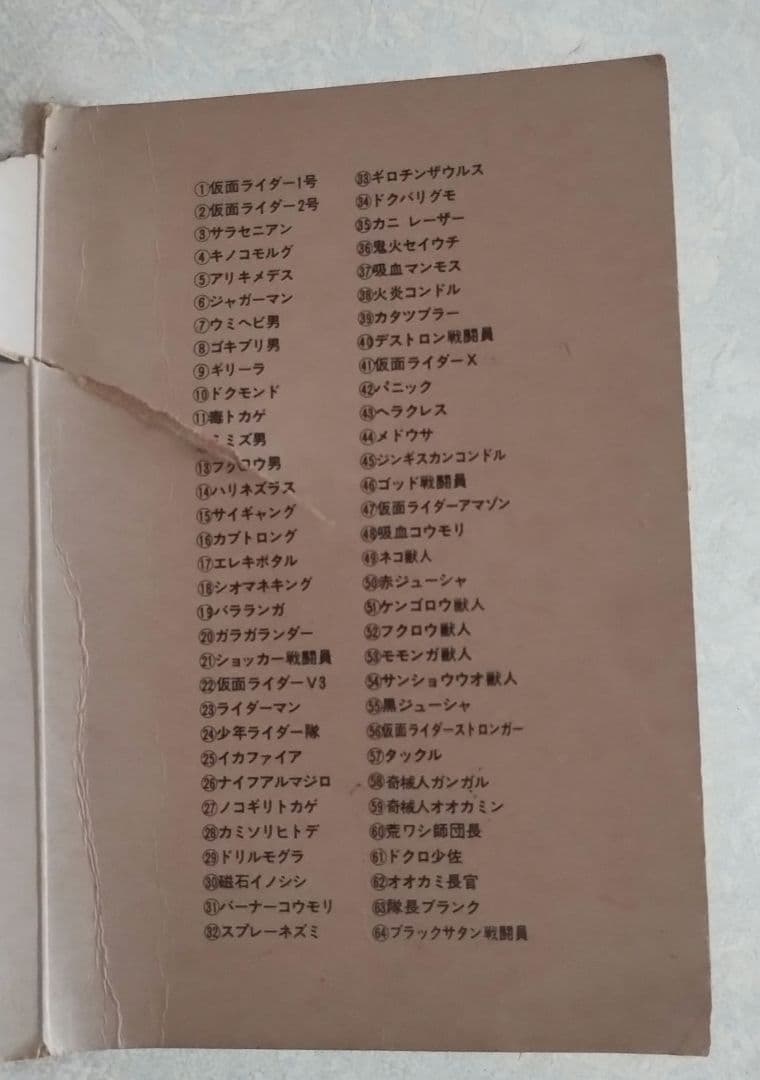 ①仮面ライダー1号
②仮面ライダー2号
③サラセニアン
④キノコモルグ
⑤アリキメデス
⑥ジャガーマン
⑦ウミヘビ男
⑧ゴキブリ男
⑨ギリーラ
⑩ドクモンド
⑪毒トカゲ
ミズ男
⑬フクロウ男
⑭ハリネズラス
⑮サイギャング
⑯カブトロング
⑰エレキボタル
⑱シオマネキング
⑲バラランガ
⑳ガラガランダー
㉑ショッカー戦闘員
㉒仮面ライダーV3
㉓ライダーマン
㉔少年ライダー隊
㉕イカファイア
㉖ナイフアルマジロ
㉗ノコギリトカゲ
㉘カミソリヒトデ
㉙ドリルモグラ
㉚磁石イノシシ
㉛バーナーコウモリ
㉜スプレーネズミ
㉝ギロチンザウルス
㉞ドクバリグモ
㉟カニ レーザー
㊱鬼火セイウチ
㊲吸血マンモス
㊳火炎コンドル
㊴カタツブラー
㊵デストロン戦闘員
㊶仮面ライダーX
㊷パニック
㊸ヘラクレス
㊹メドウサ
㊺ジンギスカンコンドル
㊻ゴッド戦闘員
㊼仮面ライダーアマゾン
㊽吸血コウモリ
㊾ネコ獣人
㊿赤ジューシャ
51ケンゴロウ獣人
52フクロウ獣人
53モモンガ獣人
54サンショウウオ獣人
55黒ジューシャ
56仮面ライダーストロンガー
57タックル
58奇械人ガンガル
59奇械人オオカミン
60荒ワシ師団長
61ドクロ少佐
62オオカミ長官
63隊長ブランク
64ブラックサタン戦闘員